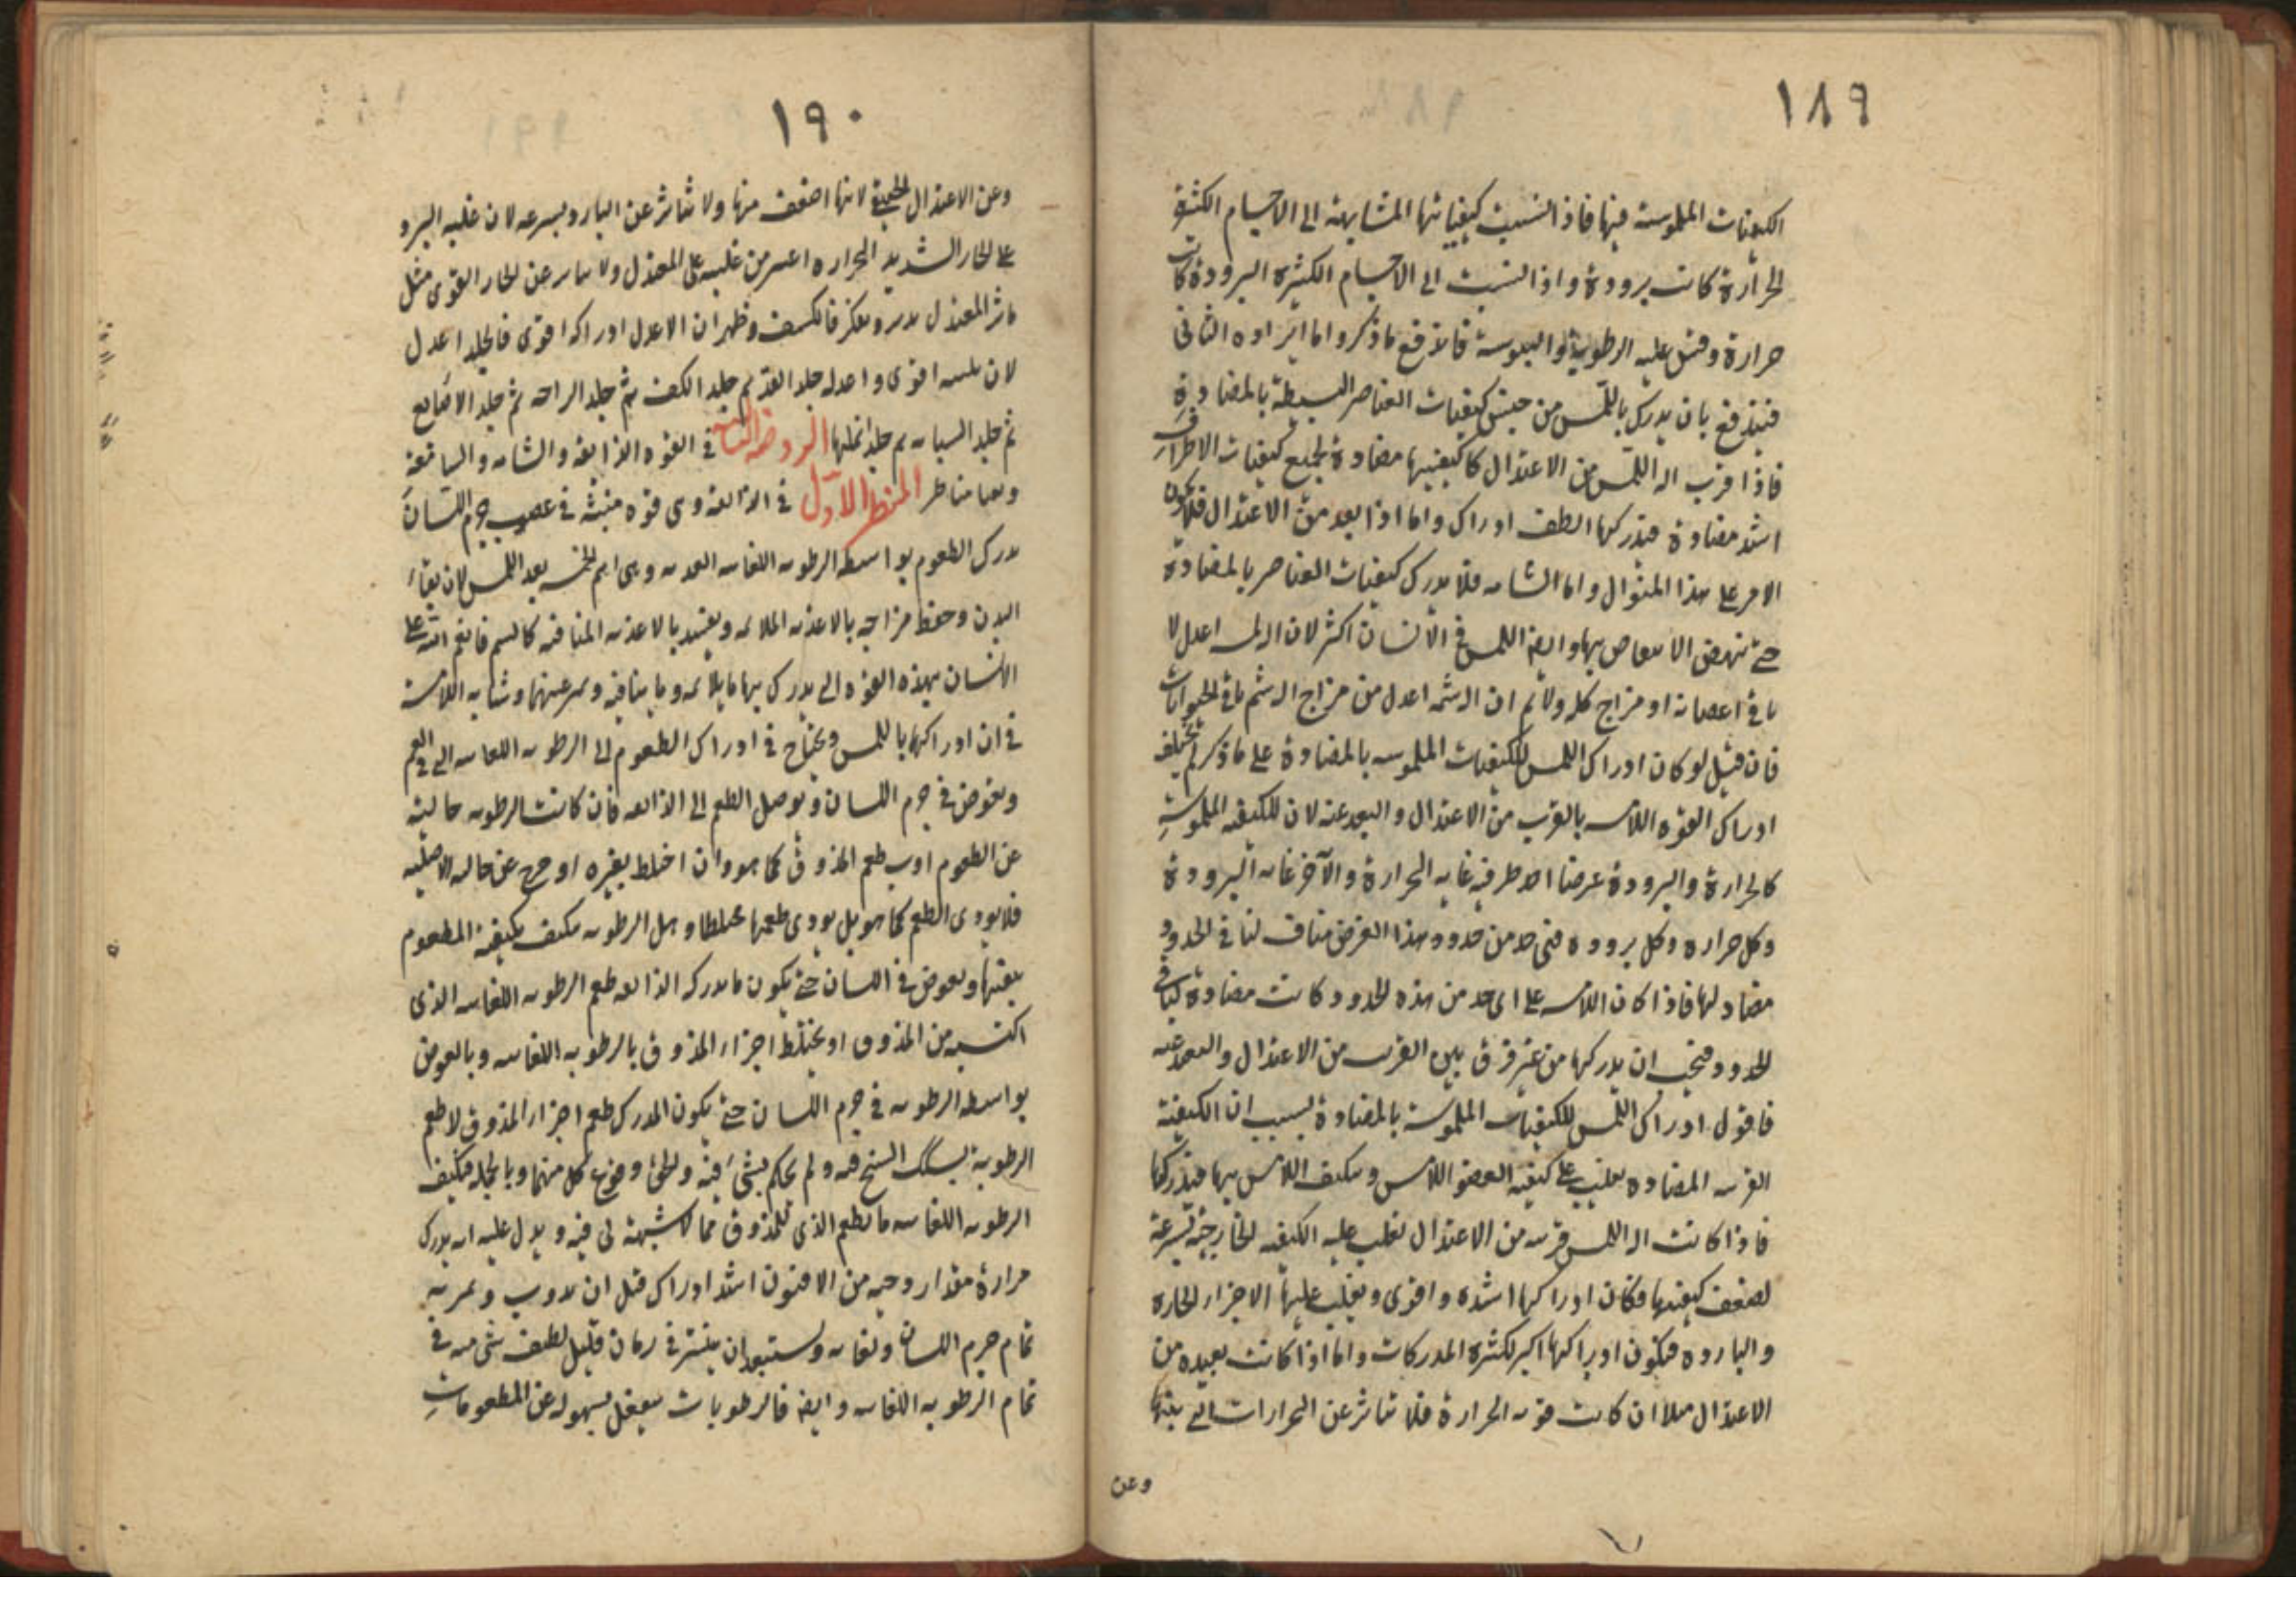 ١٨٩
الكيفيات الملموسة فيها فاذا نسبت كيفياتها المتشابهة الى الاجسام الكثيرة
الحرارة كانت برودة واذا نسبت الى الاجسام الكثيرة البرودة كانت
حرارة وقس عليه الرطوبة واليبوسة فاندفع ما ذكر واما ايراده الثانى
فيندفع بان يدرك باللمس من حيث كيفيات العناصر البسيطة بالمضادة
فاذا قرب اله اللمس من الاعتدال كا كيفيتها مضادة لجميع كيفيات الاطراف
اشد مضادة فيدركها الطف ادراك واما اذا بعد من الاعتدال فلا يكون
الامر على هذا المنوال واما الشامه فلا يدرك كيفيات العناصر بالمضادة
حتى ينهض بها وايضا اللمس فى الانسان اكثر لان اعدل لا
باقى اعضائه او مزاج كله ولا ثم ان اله شمه اعدل من مزاج اله شم باقى الحيوانات
فان قيل لو كان ادراك اللمس للكيفيات الملموسه بالمضادة على ما ذكر لم يختلف
ادراك القوه اللامسه بالقرب من الاعتدال والبعد عنه لان للكيفيه الملموسة
كالحرارة والبرودة عرضا احد طرفيه غايه الحرارة والآخر غايه البرودة
وكل حراره وكل بروده فهى حد من حدود هذا العرض مناف لباقى الحدود
مضاد لها فاذا كان اللامسه على اى حد من هذه الحدود كانت مضادة لباقى
الحدود فيجب ان يدركها من غير فرق بين القرب من الاعتدال والبعد عنه
فاقول ادراك اللمس للكيفيات الملموسة بالمضادة بسبب ان الكيفية
القريبه المضاده يغلب على كيفيه العضو اللامس ويتكيف اللامس بها فيدركها
فاذا كانت اله اللمس قريبه من الاعتدال تغلب عليه الكيفيه الخارجية بسرعة
لضعف كيفيتها فكان ادراكها اشده واقوى ويغلب عليها الاجزاء الحاره
والبارده فيكون ادراكها اكثر لكثره المدركات واما اذا كانت بعيده من
الاعتدال مثلا ان كانت قويه الحرارة فلا تتاثر عن الحرارات التى بينها
وعن
١٩٠
وعن الاعتدال لانها اضعف منها ولا تتاثر عن البارد بسرعه لان غلبه البرد
على الحار الشديد الحراره اعسر من غلبه على المعتدل ولا يتاثر عن الحار القوى مثل
تاثر المعتدل فانكشف وظهر ان الاعدل ادراكه اقوى فالجلد اعدل
لان لمسه اقوى واعدله جلد اليد ثم جلد الكف ثم جلد الراحه ثم جلد الاصابع
ثم جلد السبابه ثم جلد انملها الروضه الثالثه فى القوه الذائقه والشامه والسامعة
وفيها مناظر المنظر الاول فى الذائقه وهى قوه منبثه فى عصب جرم اللسان
يدرك الطعوم بواسطه الرطوبه اللعابيه العذبه وهى اهم الخمس بعد اللمس لان بقاء
البدن وحفظ مزاجه بالاغذيه الملائمه ويفسد بالاغذيه المنافيه كالسم فانعم الله على
الانسان بهذه القوه التى يدرك بها ما يلائمه وما ينافيه ويميز عنهما وشابه اللامسة
فى ان ادراكها باللمس ويحتاج فى ادراك الطعوم الى الرطوبه اللعابيه التى فى الفم
ويغوض فى جرم اللسان ويوصل الطعم الى الذائقه فان كانت الرطوبه خالية
عن الطعوم ادت طعم المذوق كما هو وان اختلط بغيره او خرج عن حاله الاصلية
فلا يودى الطعم كما هو بل يودى طعمها مختلطا وهل الرطوبه يتكيف بكيفية المطعوم
بعينها ويغوض فى اللسان حتى يكون ما يدركه الذائقه طعم الرطوبه اللعابيه الذى
اكتسبه من المذوق او يختلط اجزاء المذوق بالرطوبه اللعابيه وبالغوض
بواسطه الرطوبه فى جرم اللسان حتى يكون المدرك طعم اجزاء المذوق لا طعم
الرطوبة يسلك الشيخ فيه ولم يحكم بشئ فيه كل منهما وبالجمله فتكيف
الرطوبه اللعابيه بالطعم الذى للمذوق مما لا شبهة لى فيه ويدل عليه انه يدرك
مرارة مقدار وحبه من الافيون اشد ادراك قبل ان يذوب ويمر به
تمام جرم اللسان ولعابه ويستبعد ان ينتشر فى زمان قليل لطيف شئ منه فى
تمام الرطوبه اللعابيه وايضا فالرطوبات ينفعل بسهوله عن المطعومات